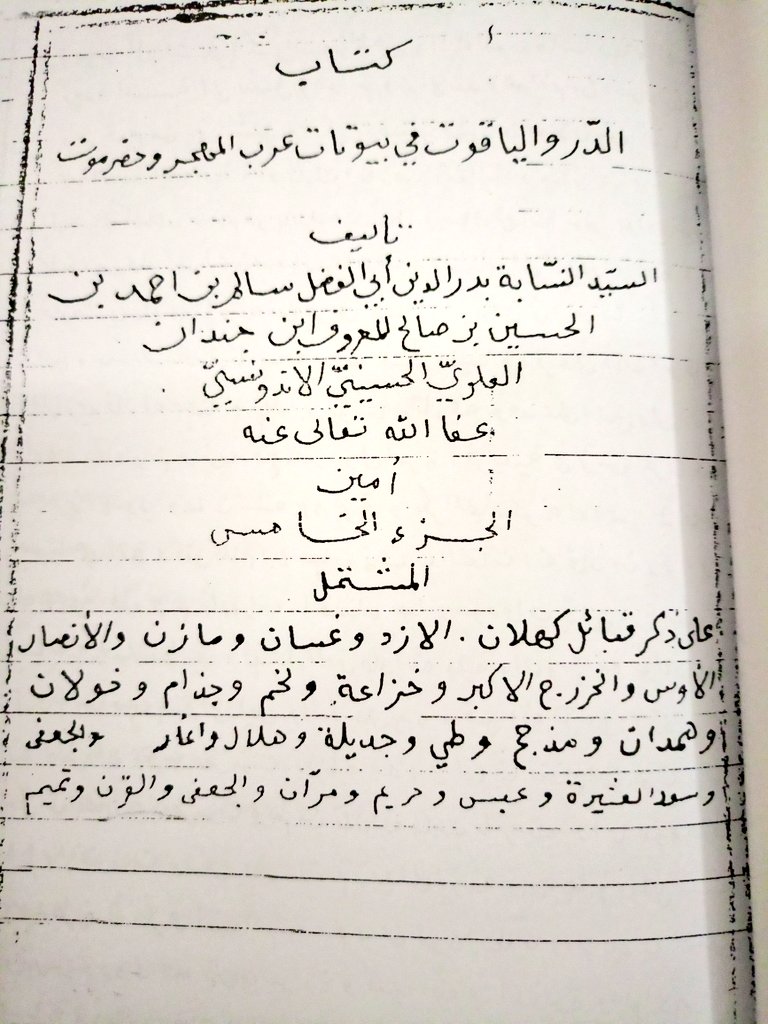 كتاب
الدّر والياقوت في بيوتات عرب المهجر وحضرموت
تأليف
السيّد النسّابة بدر الدين أبي الفضل سالم بن احمد بن
الحسين بن صالح المعروف ابن جندان
العلويّ الحسينيّ الاندونيسيّ
عفا الله تعالى عنه
أمين
الجزء الخامس
المشتمل
على ذكر قبائل كهلان . الازد وغسان ومازن والأنصار
الأوس والخزرج الاكبر وخزاعة ولخم وجذام وخولان
وهمدان ومذحج وطي وجديلة وهلال وانمار والجعفى
وسعد العشيرة وعبس وحريم ومرّان والجعفى والقرن وتميم